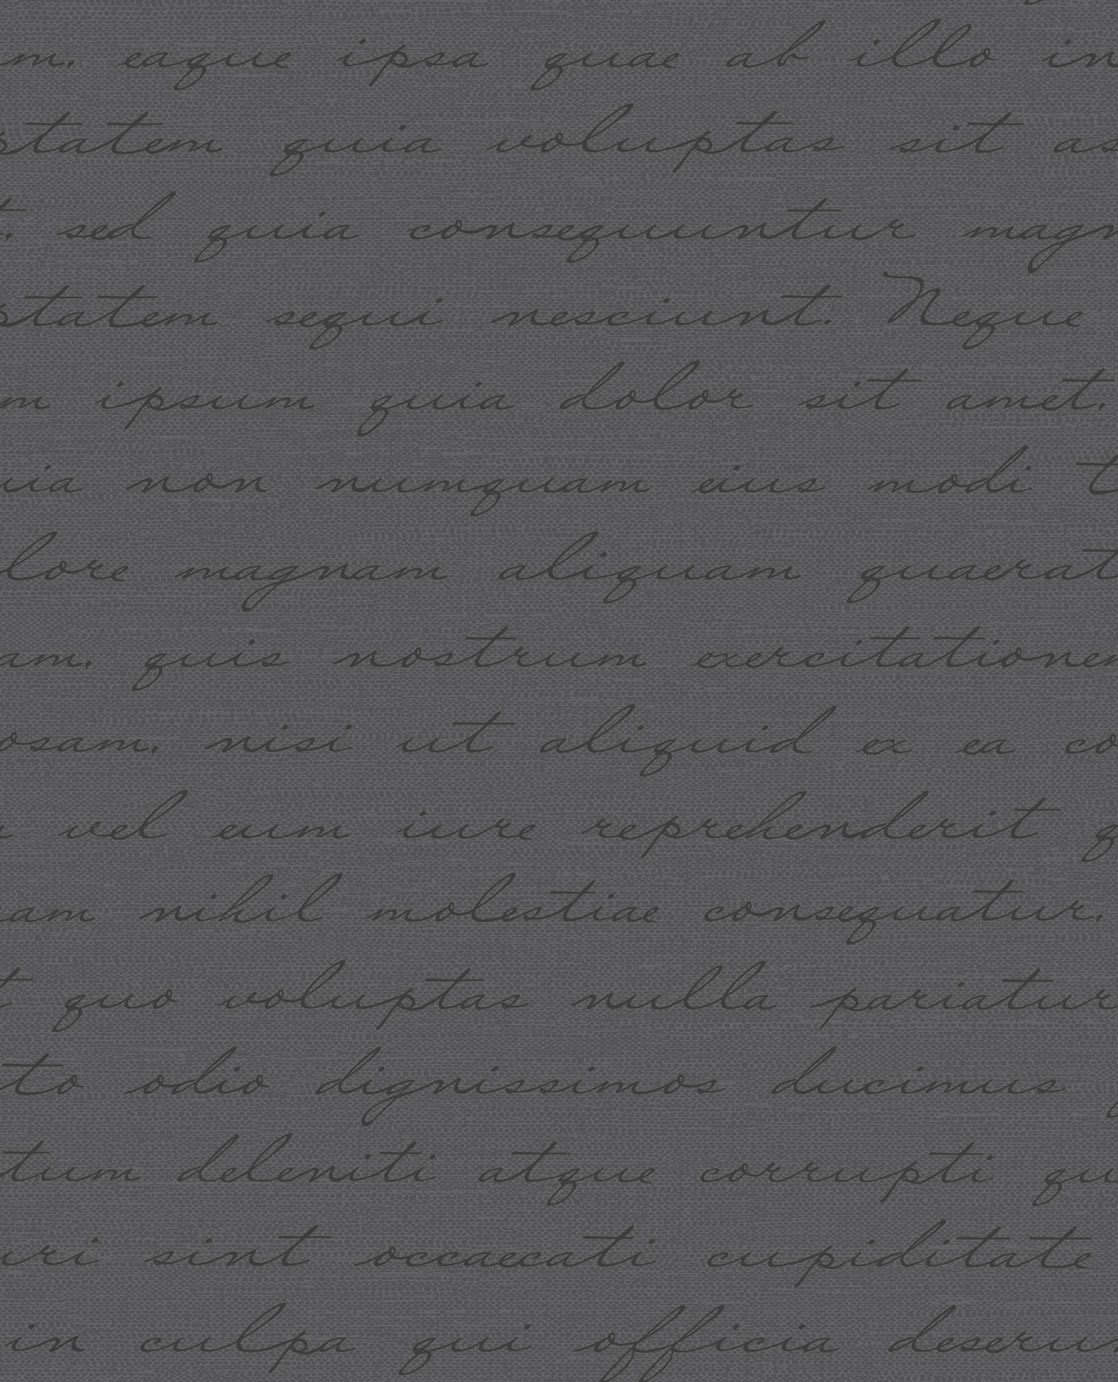 am, eaque ipsa quae ab illo in
ptatem quia voluptas sit as
t, sed quia consequuntur magn
ptatem sequi nesciunt. Neque
m ipsum quia dolor sit amet,
uia non numquam eius modi t
lore magnam aliquam quaerat
am, quis nostrum exercitationem
osam, nisi ut aliquid ex ea co
vel eum iure reprehenderit q
am nihil molestiae consequatur,
t quo voluptas nulla pariatur
to odio dignissimos ducimus
tum deleniti atque corrupti qu
uri sint occaecati cupiditate
in culpa qui officia deseru